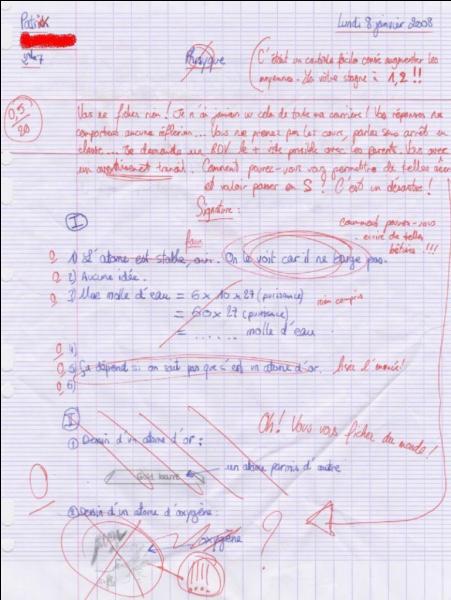 Patrick
Lundi 8 janvier 2008
2nde 7
Physique
C'était un contrôle facile censé augmenter les
moyennes. La vôtre stagne à 1,2 !!
0,5/20
Vous ne fichez rien ! Je n'ai jamais vu cela de toute ma carrière ! Vos réponses ne
comportent aucune réflexion... Vous ne prenez pas les cours, parlez sans arrêt en
classe... Je demande un RDV le + vite possible avec les parents. Vous avez
un avertissement travail. Comment pouvez-vous vous permettre de telles
et vouloir passer en S ? C'est un désastre !
Signature :
comment pouvez-vous
écrire de telles
bêtises !!!
I
faux
0 1) L'atome est stable, oui. On le voit car il ne bouge pas.
0 2) Aucune idée.
0 3) Une molle d'eau = 6 x 10 x 27 (puissance)
non compris
= 60 x 27 (puissance)
= ...... molle d'eau
0 4)
0 5) Ça dépend si on sait pas que c'est un atome d'or.
Lisez l'énoncé !
0 6)
II
Oh ! Vous vous fichez du monde !
① Dessin d'un atome d'or :
Gold barre
un atome parmis d'autre
0
② Dessin d'un atome d'oxygène :
oxygène
?
!!!!